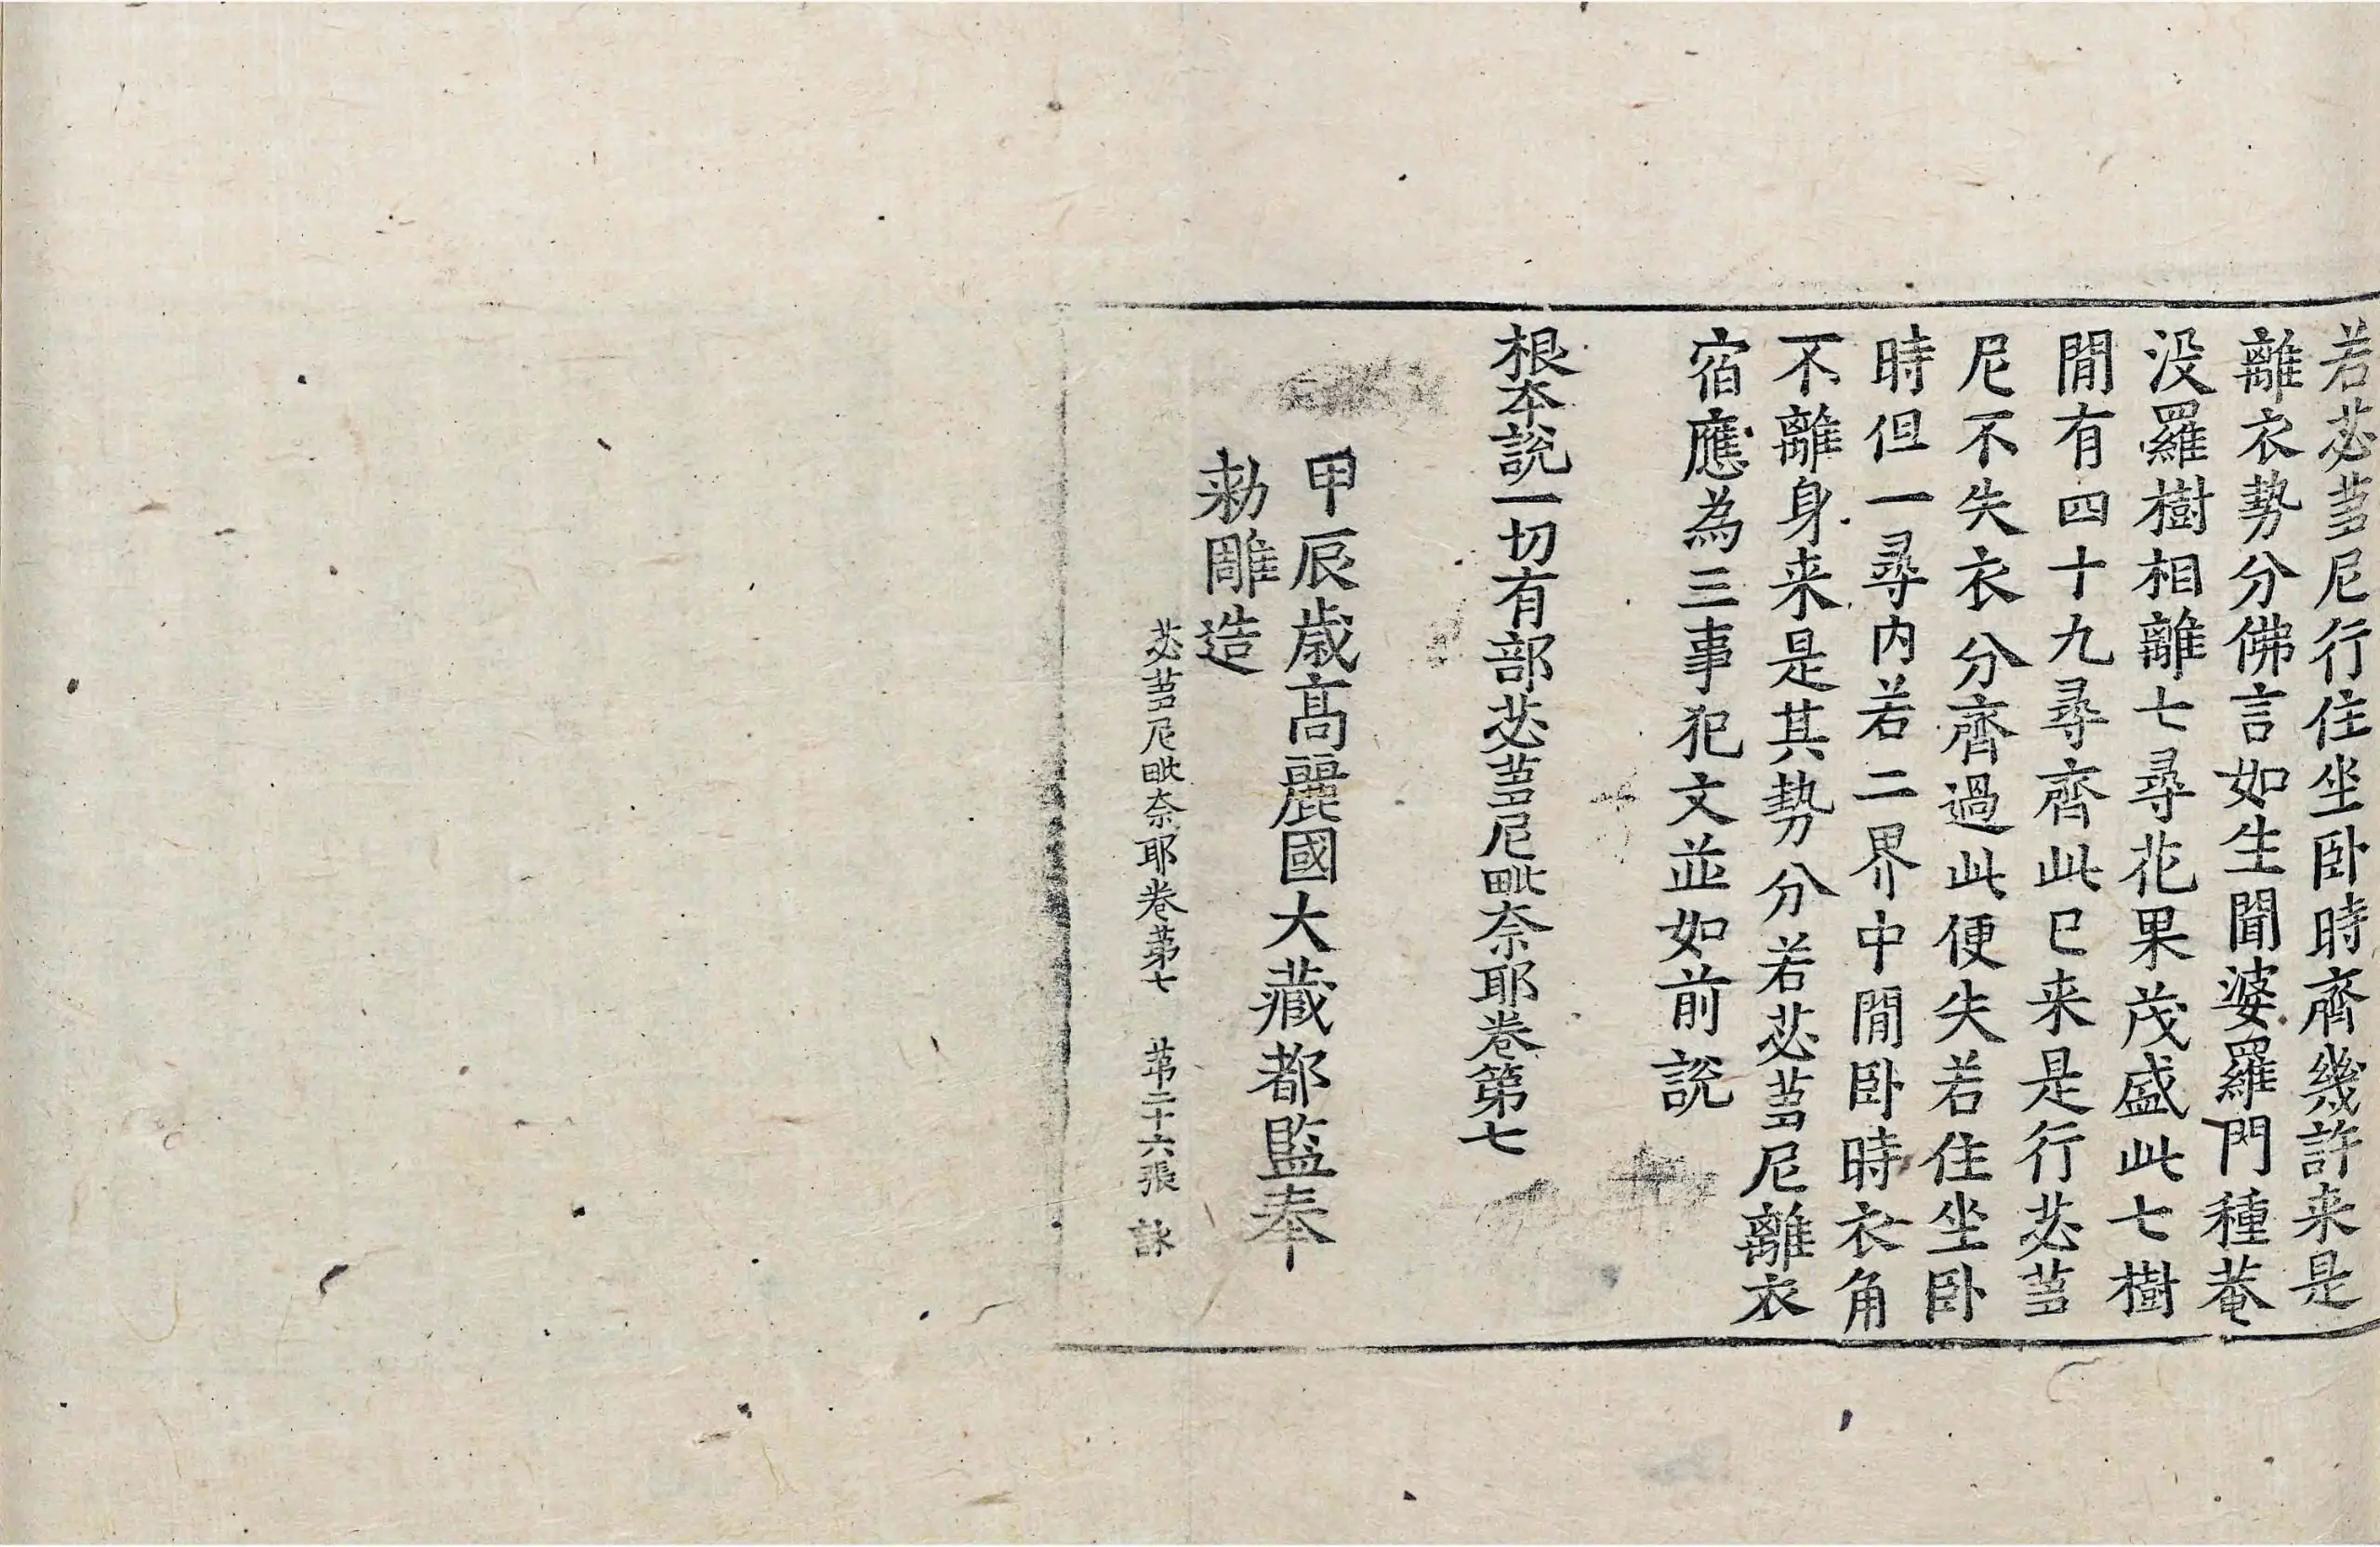 若苾蒭尼行住坐卧時齊幾許来是
離衣勢分佛言如生聞婆羅門種菴
没羅樹相離七尋花果茂盛此七樹
閒有四十九尋齊此已来是行苾蒭
尼不失衣分齊過此便失若住坐卧
時但一尋内若二界中閒卧時衣角
不離身来是其勢分若苾蒭尼離衣
宿應為三事犯文並如前說
根本說一切有部苾蒭尼毗奈耶卷第七
甲辰歳高麗國大藏都監奉
勑雕造
苾蒭尼毗奈耶卷第七 第二十六張 詠